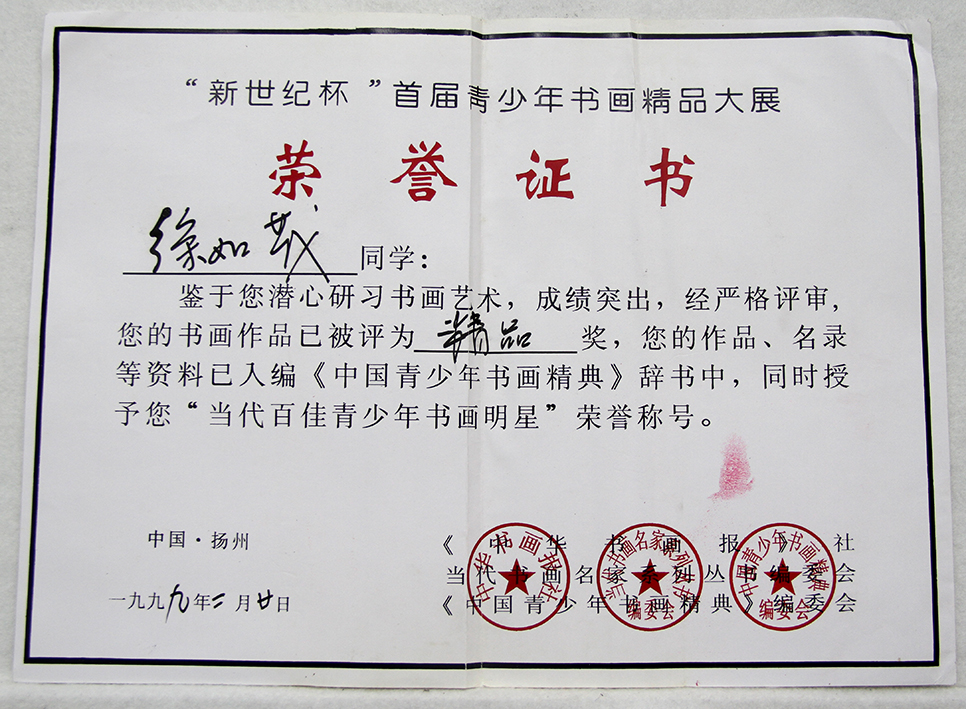 “新世纪杯”首届青少年书画精品大展
荣誉证书
徐如 同学：
鉴于您潜心研习书画艺术，成绩突出，经严格评审，
您的书画作品已被评为 精品 奖，您的作品、名录
等资料已入编《中国青少年书画精典》辞书中，同时授
予您“当代百佳青少年书画明星”荣誉称号。
中国·扬州
《中华书画报》社
当代书画名家系列丛书编委会
一九九九年二月廿日
《中国青少年书画精典》编委会
中华书画报社
当代书画名家系列丛书
编委会
中国青少年书画精典
编委会